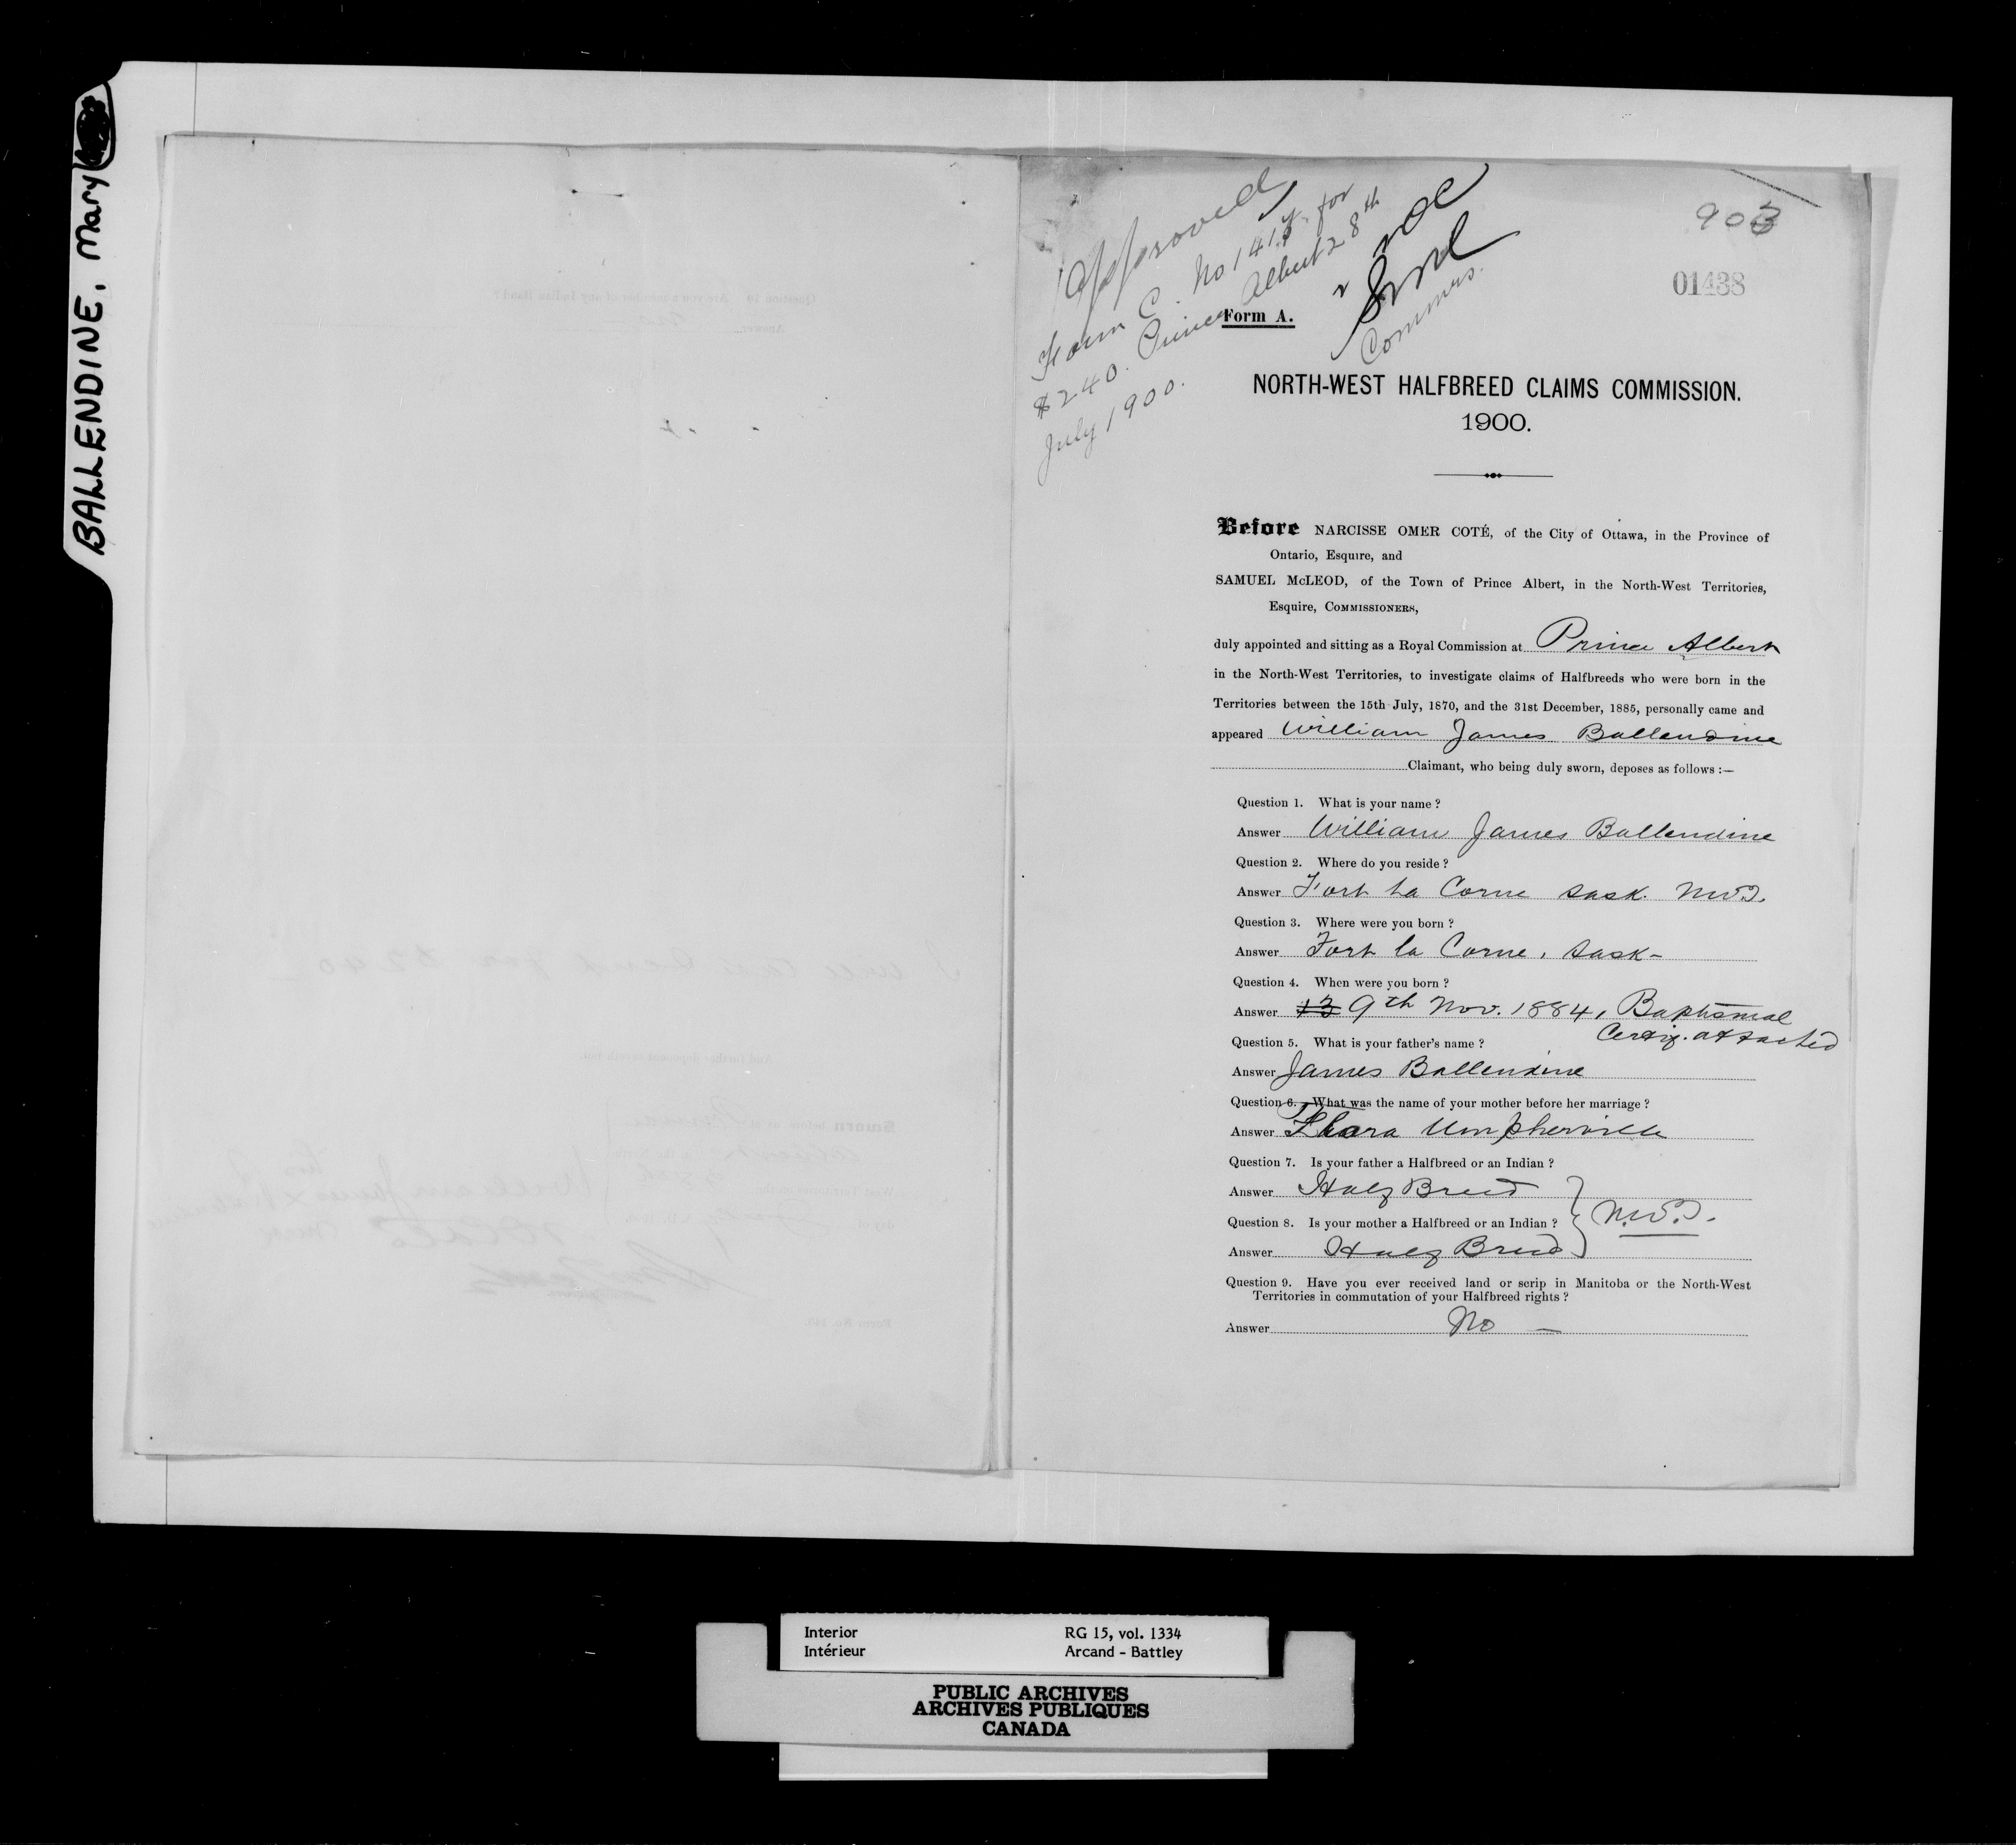 BALLENDINE, Mary
Approved
Form C. No 1417 for
$240. Prince Albert 28th
July 1900.
Commrs.
903
01438
Form A.
NORTH-WEST HALFBREED CLAIMS COMMISSION.
1900.
Before NARCISSE OMER COTÉ, of the City of Ottawa, in the Province of
Ontario, Esquire, and
SAMUEL McLEOD, of the Town of Prince Albert, in the North-West Territories,
Esquire, COMMISSIONERS,
duly appointed and sitting as a Royal Commission at Prince Albert
in the North-West Territories, to investigate claims of Halfbreeds who were born in the
Territories between the 15th July, 1870, and the 31st December, 1885, personally came and
appeared William James Ballendine
Claimant, who being duly sworn, deposes as follows :—
Question 1. What is your name ?
Answer William James Ballendine
Question 2. Where do you reside ?
Answer Fort La Corne Sask. N.W.T.
Question 3. Where were you born ?
Answer Fort la Corne, Sask-
Question 4. When were you born ?
Answer 13 9th Nov. 1884, Baptismal
Certif. attached
Question 5. What is your father's name ?
Answer James Ballendine
Question 6. What was the name of your mother before her marriage ?
Answer Umpherville
Question 7. Is your father a Halfbreed or an Indian ?
Answer Half Breed
Question 8. Is your mother a Halfbreed or an Indian ? N.W.T.
Answer Half Breed
Question 9. Have you ever received land or scrip in Manitoba or the North-West
Territories in commutation of your Halfbreed rights ?
Answer No —
Interior RG 15, vol. 1334
Intérieur Arcand - Battley
PUBLIC ARCHIVES
ARCHIVES PUBLIQUES
CANADA